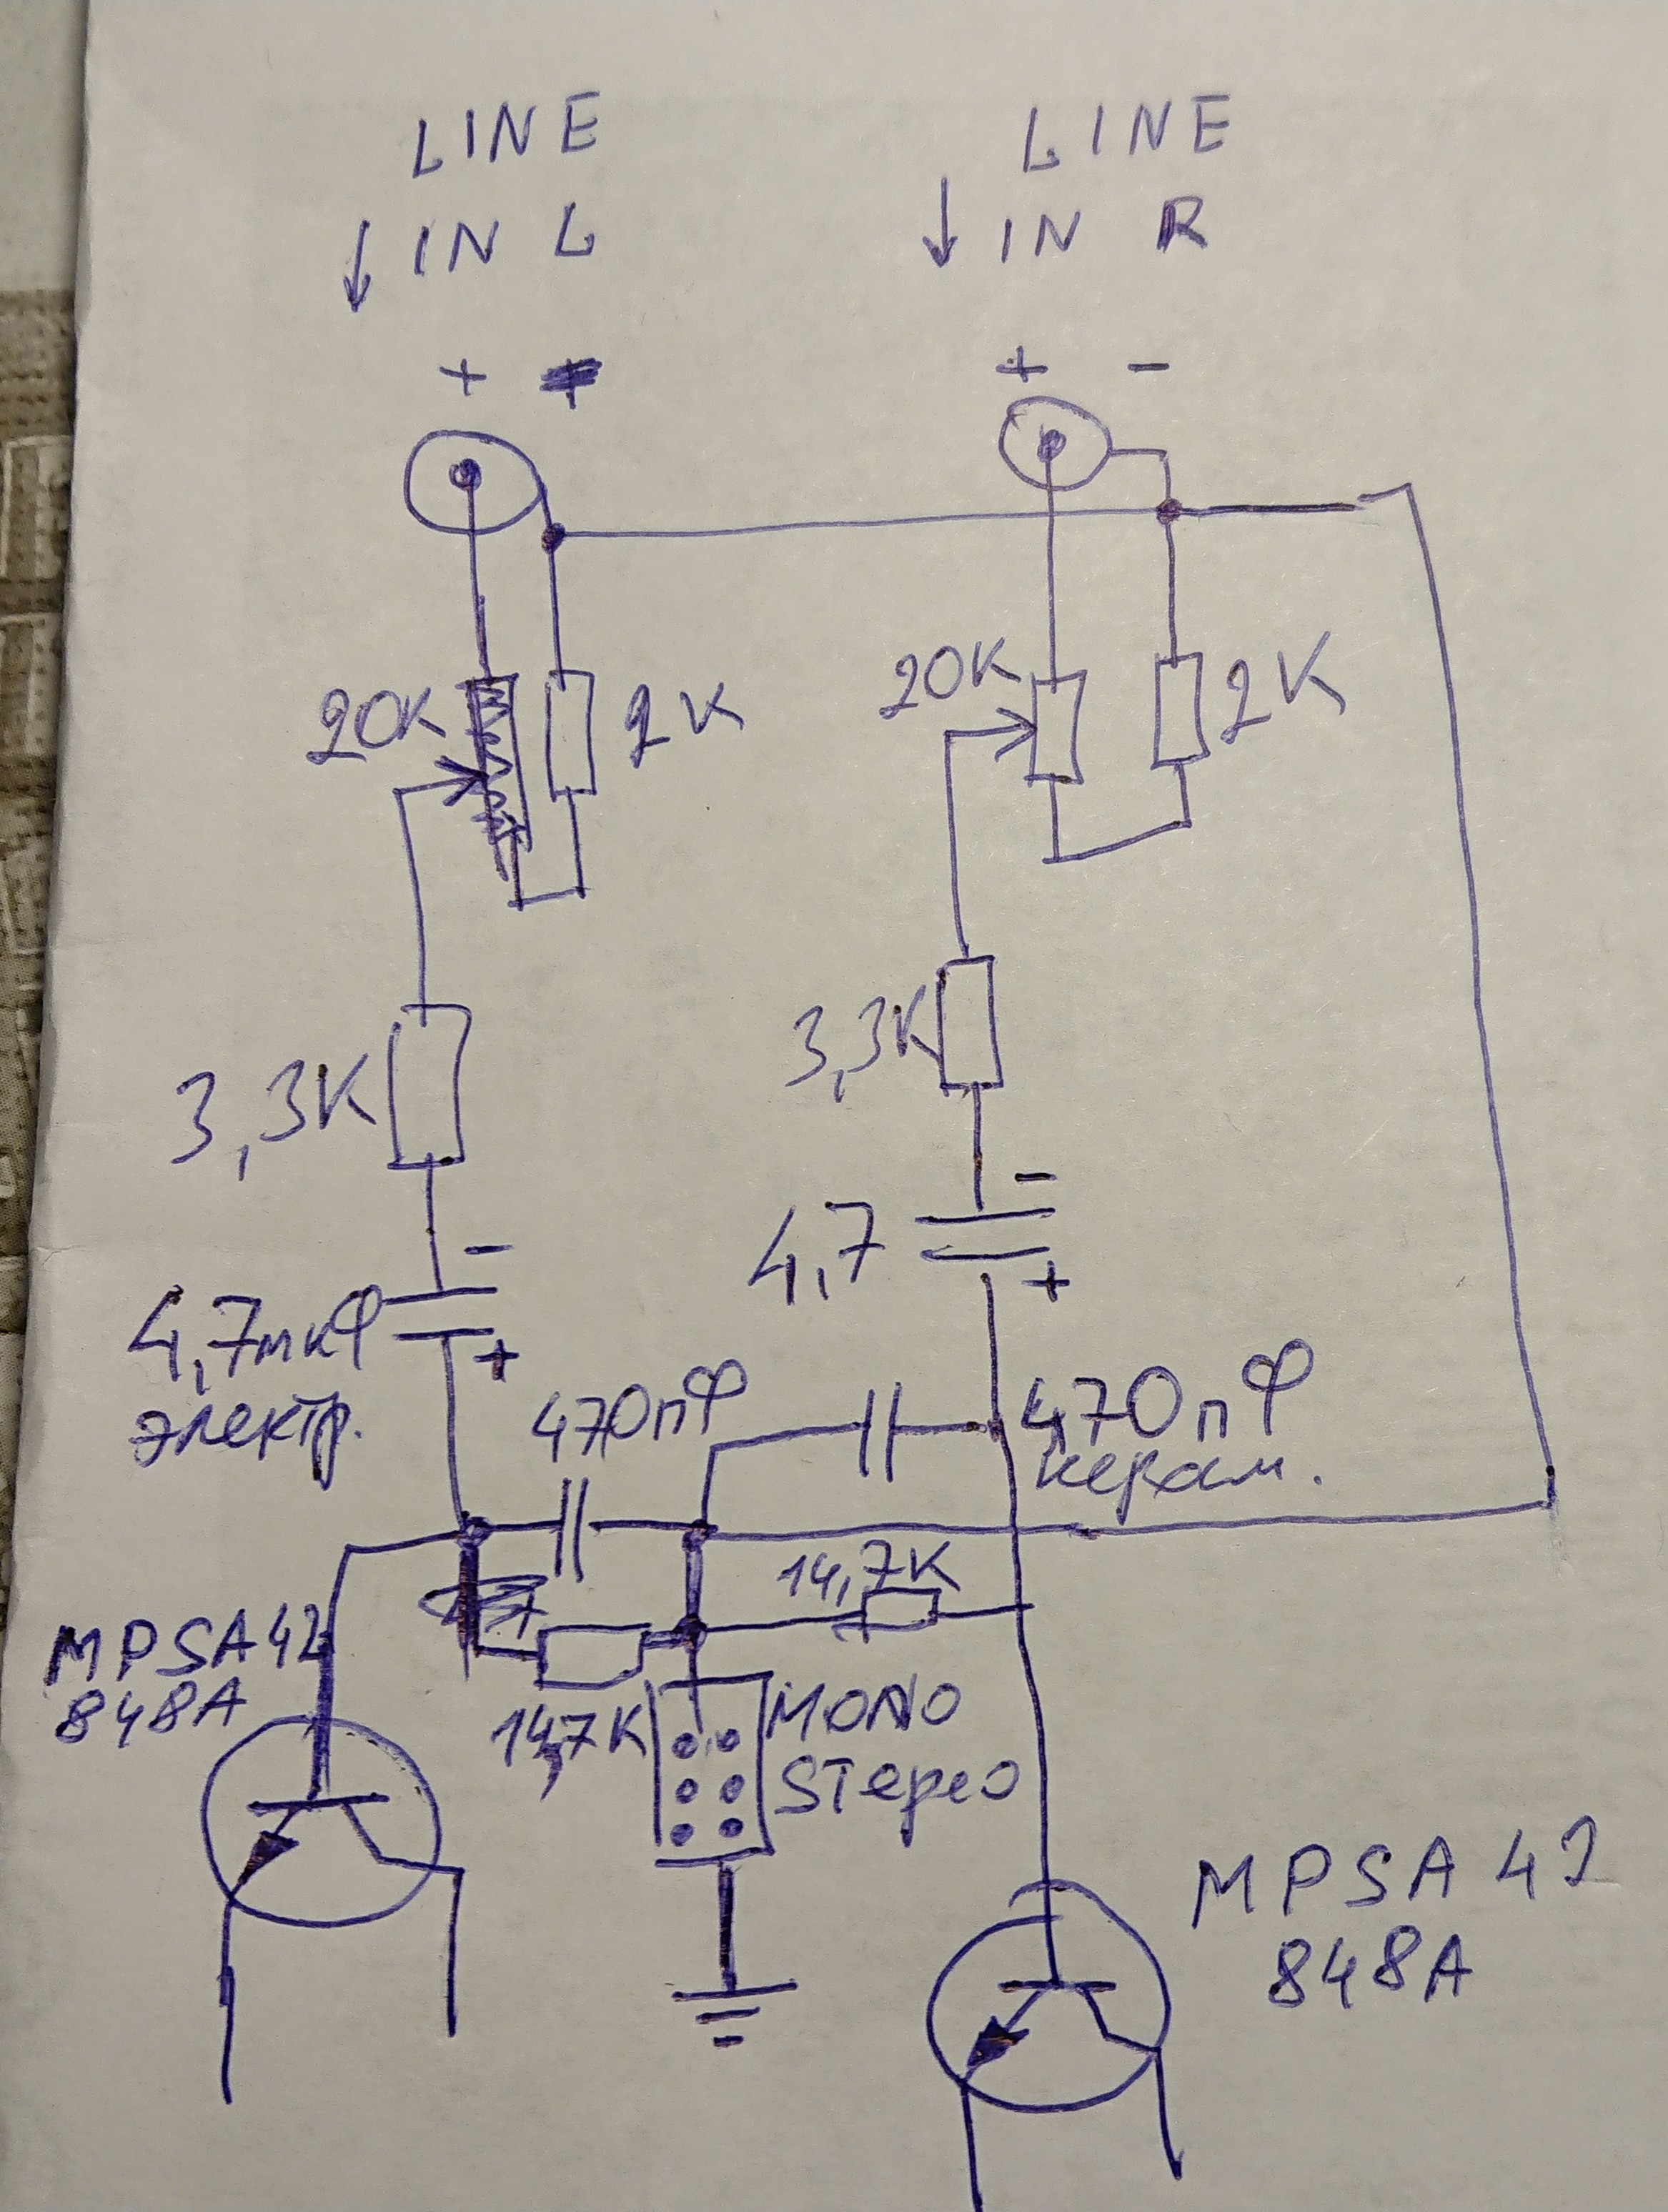 LINE
IN L
LINE
IN R
+
+ -
20K
2K
20K
2K
3,3K
3,3K
-
4,7мкФ
+
электр.
-
4,7
+
470пФ
470пФ
керам.
14,7K
MPSA42
848A
14,7K
MONO
STерео
MPSA 42
848A